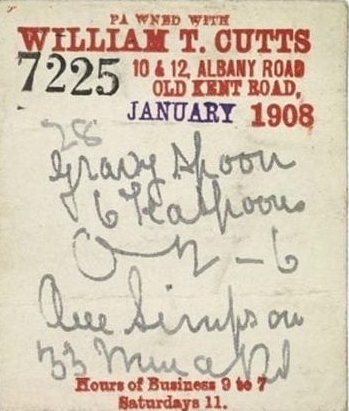 PAWNED WITH
WILLIAM T. CUTTS
7225 10 & 12, ALBANY ROAD
OLD KENT ROAD,
JANUARY 1908
28
Gravy Spoon
6 Teaspoons
Ann Simpson
33
Hours of Business 9 to 7
Saturdays 11.